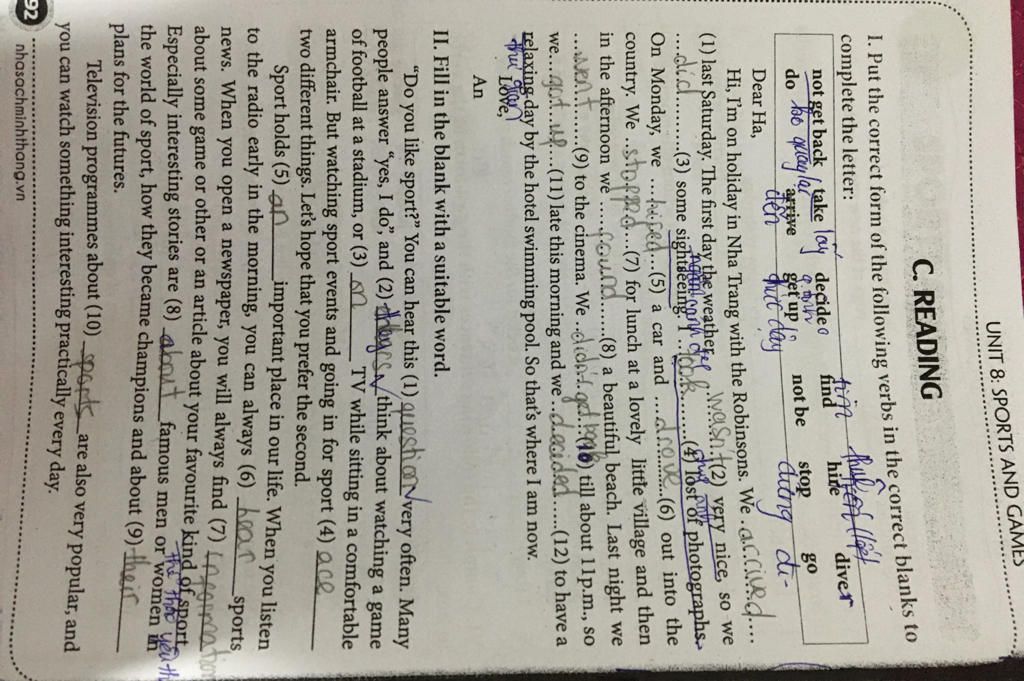 UNIT 8: SPORTS AND GAMES
C. READING
I. Put the correct form of the following verbs in the correct blanks to
complete the letter:
not get back take lấy decide find tìm hire thuê diver
do bỏ quay lại arrive đến get up thức dậy not be stop dừng go đi
Dear Ha,
Hi, I'm on holiday in Nha Trang with the Robinsons. We .arrived....
(1) last Saturday. The first day the weather .wasn't (2) very nice, so we
....did.......(3) some sightseeing. I ..took.......(4) lost of photographs.
On Monday, we ....hired...(5) a car and ....drove..(6) out into the
country. We ...stopped...(7) for lunch at a lovely little village and then
in the afternoon we .....found.......(8) a beautiful beach. Last night we
....went.......(9) to the cinema. We ..didn't get back (10) till about 11p.m., so
we...got up...(11) late this morning and we ..decided.....(12) to have a
relaxing day by the hotel swimming pool. So that's where I am now.
thư giãn Love,
An
II. Fill in the blank with a suitable word.
“Do you like sport?” You can hear this (1) question very often. Many
people answer “yes, I do”, and (2) think about watching a game
of football at a stadium, or (3) on TV while sitting in a comfortable
armchair. But watching sport events and going in for sport (4) ace
two different things. Let's hope that you prefer the second.
Sport holds (5) an important place in our life. When you listen
to the radio early in the morning, you can always (6) hear sports
news. When you open a newspaper, you will always find (7) information
about some game or other or an article about your favourite kind of sport.
Especially interesting stories are (8) about famous men or women in
the world of sport, how they became champions and about (9) their
plans for the futures.
Television programmes about (10) sports are also very popular, and
you can watch something interesting practically every day.
92 nhasachminhthang.vn